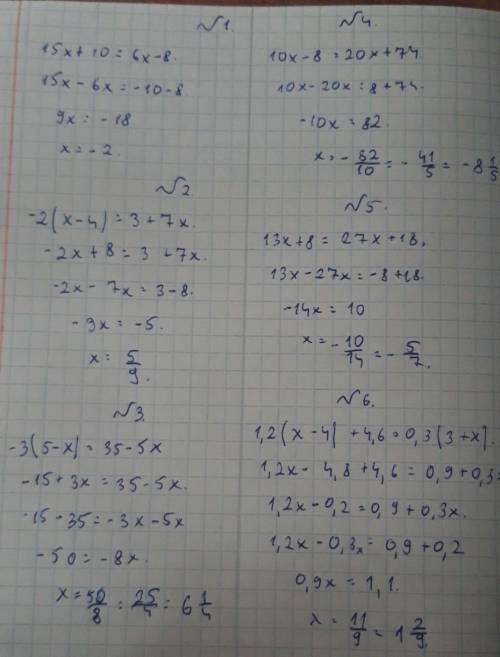 №1.
15x + 10 = 6x - 8.
15x - 6x = -10 - 8
9x = -18
x = -2.
№2
-2(x - 4) = 3 + 7x.
-2x + 8 = 3 + 7x.
-2x - 7x = 3 - 8.
-9x = -5.
x = 5/9.
№3.
-3(5 - x) = 35 - 5x
-15 + 3x = 35 - 5x.
-15 - 35 = -3x - 5x
-50 = -8x.
x = 50/8 = 25/4 = 6 1/4
№4.
10x - 8 = 20x + 74.
10x - 20x = 8 + 74.
-10x = 82.
x = -82/10 = -41/5 = -8 1/5
№5.
13x + 8 = 27x + 18.
13x - 27x = -8 + 18.
-14x = 10
x = -10/14 = -5/7.
№6.
1,2(x - 4) + 4,6 = 0,3(3 + x).
1,2x - 4,8 + 4,6 = 0,9 + 0,3x
1,2x - 0,2 = 0,9 + 0,3x.
1,2x - 0,3x = 0,9 + 0,2
0,9x = 1,1.
x = 11/9 = 1 2/9